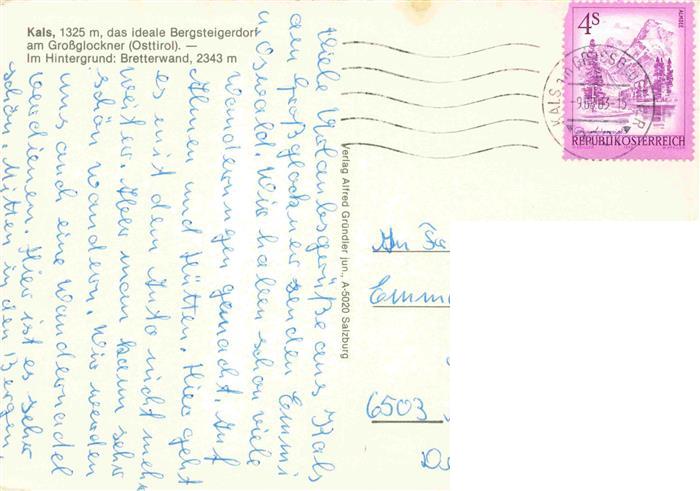 Kals, 1325 m, das ideale Bergsteigerdorf
am Großglockner (Osttirol). —
Im Hintergrund: Bretterwand, 2343 m
Viele Urlaubsgrüße aus Kals
am Großglockner senden Emmi
u Oswald. Wir haben schon viele
Wanderungen gemacht. Auf
Almen und Hütten. Hier geht
es mit dem Auto nicht mehr
weiter. Aber man kann sehr
schön wandern. Wir werden
uns auch eine Wandernadel
verdienen. Hier ist es sehr
schön. Mitten in den Bergen.
Verlag Alfred Gründler jun., A-5020 Salzburg
4S
ALMSEE
REPUBLIK ÖSTERREICH
KALS am GROSSGLOCKNER
An
Emm
6503